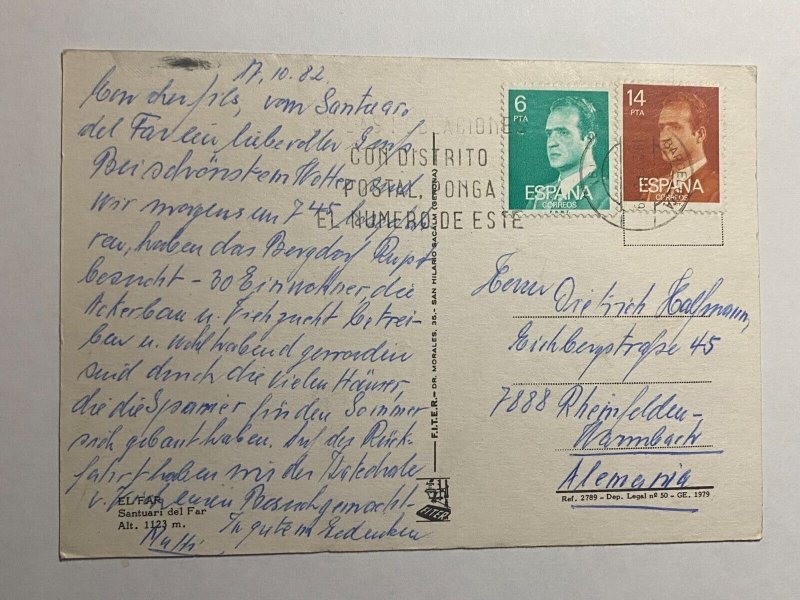 17.10.82
Mon cher fils, vom Santuaro
del Far ein liebevoller Gruß
Bei schönstem Wetter sind
wir morgens um 7 45
ren, haben das Bergdorf Rupit
besucht - 30 Einwohner, die
Ackerbau u. Viehzucht betrei-
ben u. wohlhabend geworden
sind durch die vielen Häuser,
die die Spanier für den Sommer
sich gebaut haben. Auf der Rück-
fahrt haben wir der Kathedrale
v. einen Besuch gemacht
In gutem Gedenken
Mutti
EL FAR
Santuari del Far
Alt. 1123 m.
F.I.T.E.R. - DR. MORALES, 35. - SAN HILARIO SACALM (GERONA)
FITER
6
PTA
ESPAÑA
CORREOS
14
PTA
ESPAÑA
CORREOS
POBLACIONES
CON DISTRITO
POSTAL, PONGA
EL NUMERO DE ESTE
Herrn Dietrich Hallmann,
Eichbergstraße 45
7888 Rheinfelden-
Warmbach
Alemania
Ref. 2789 - Dep. Legal nº 50 - GE. 1979